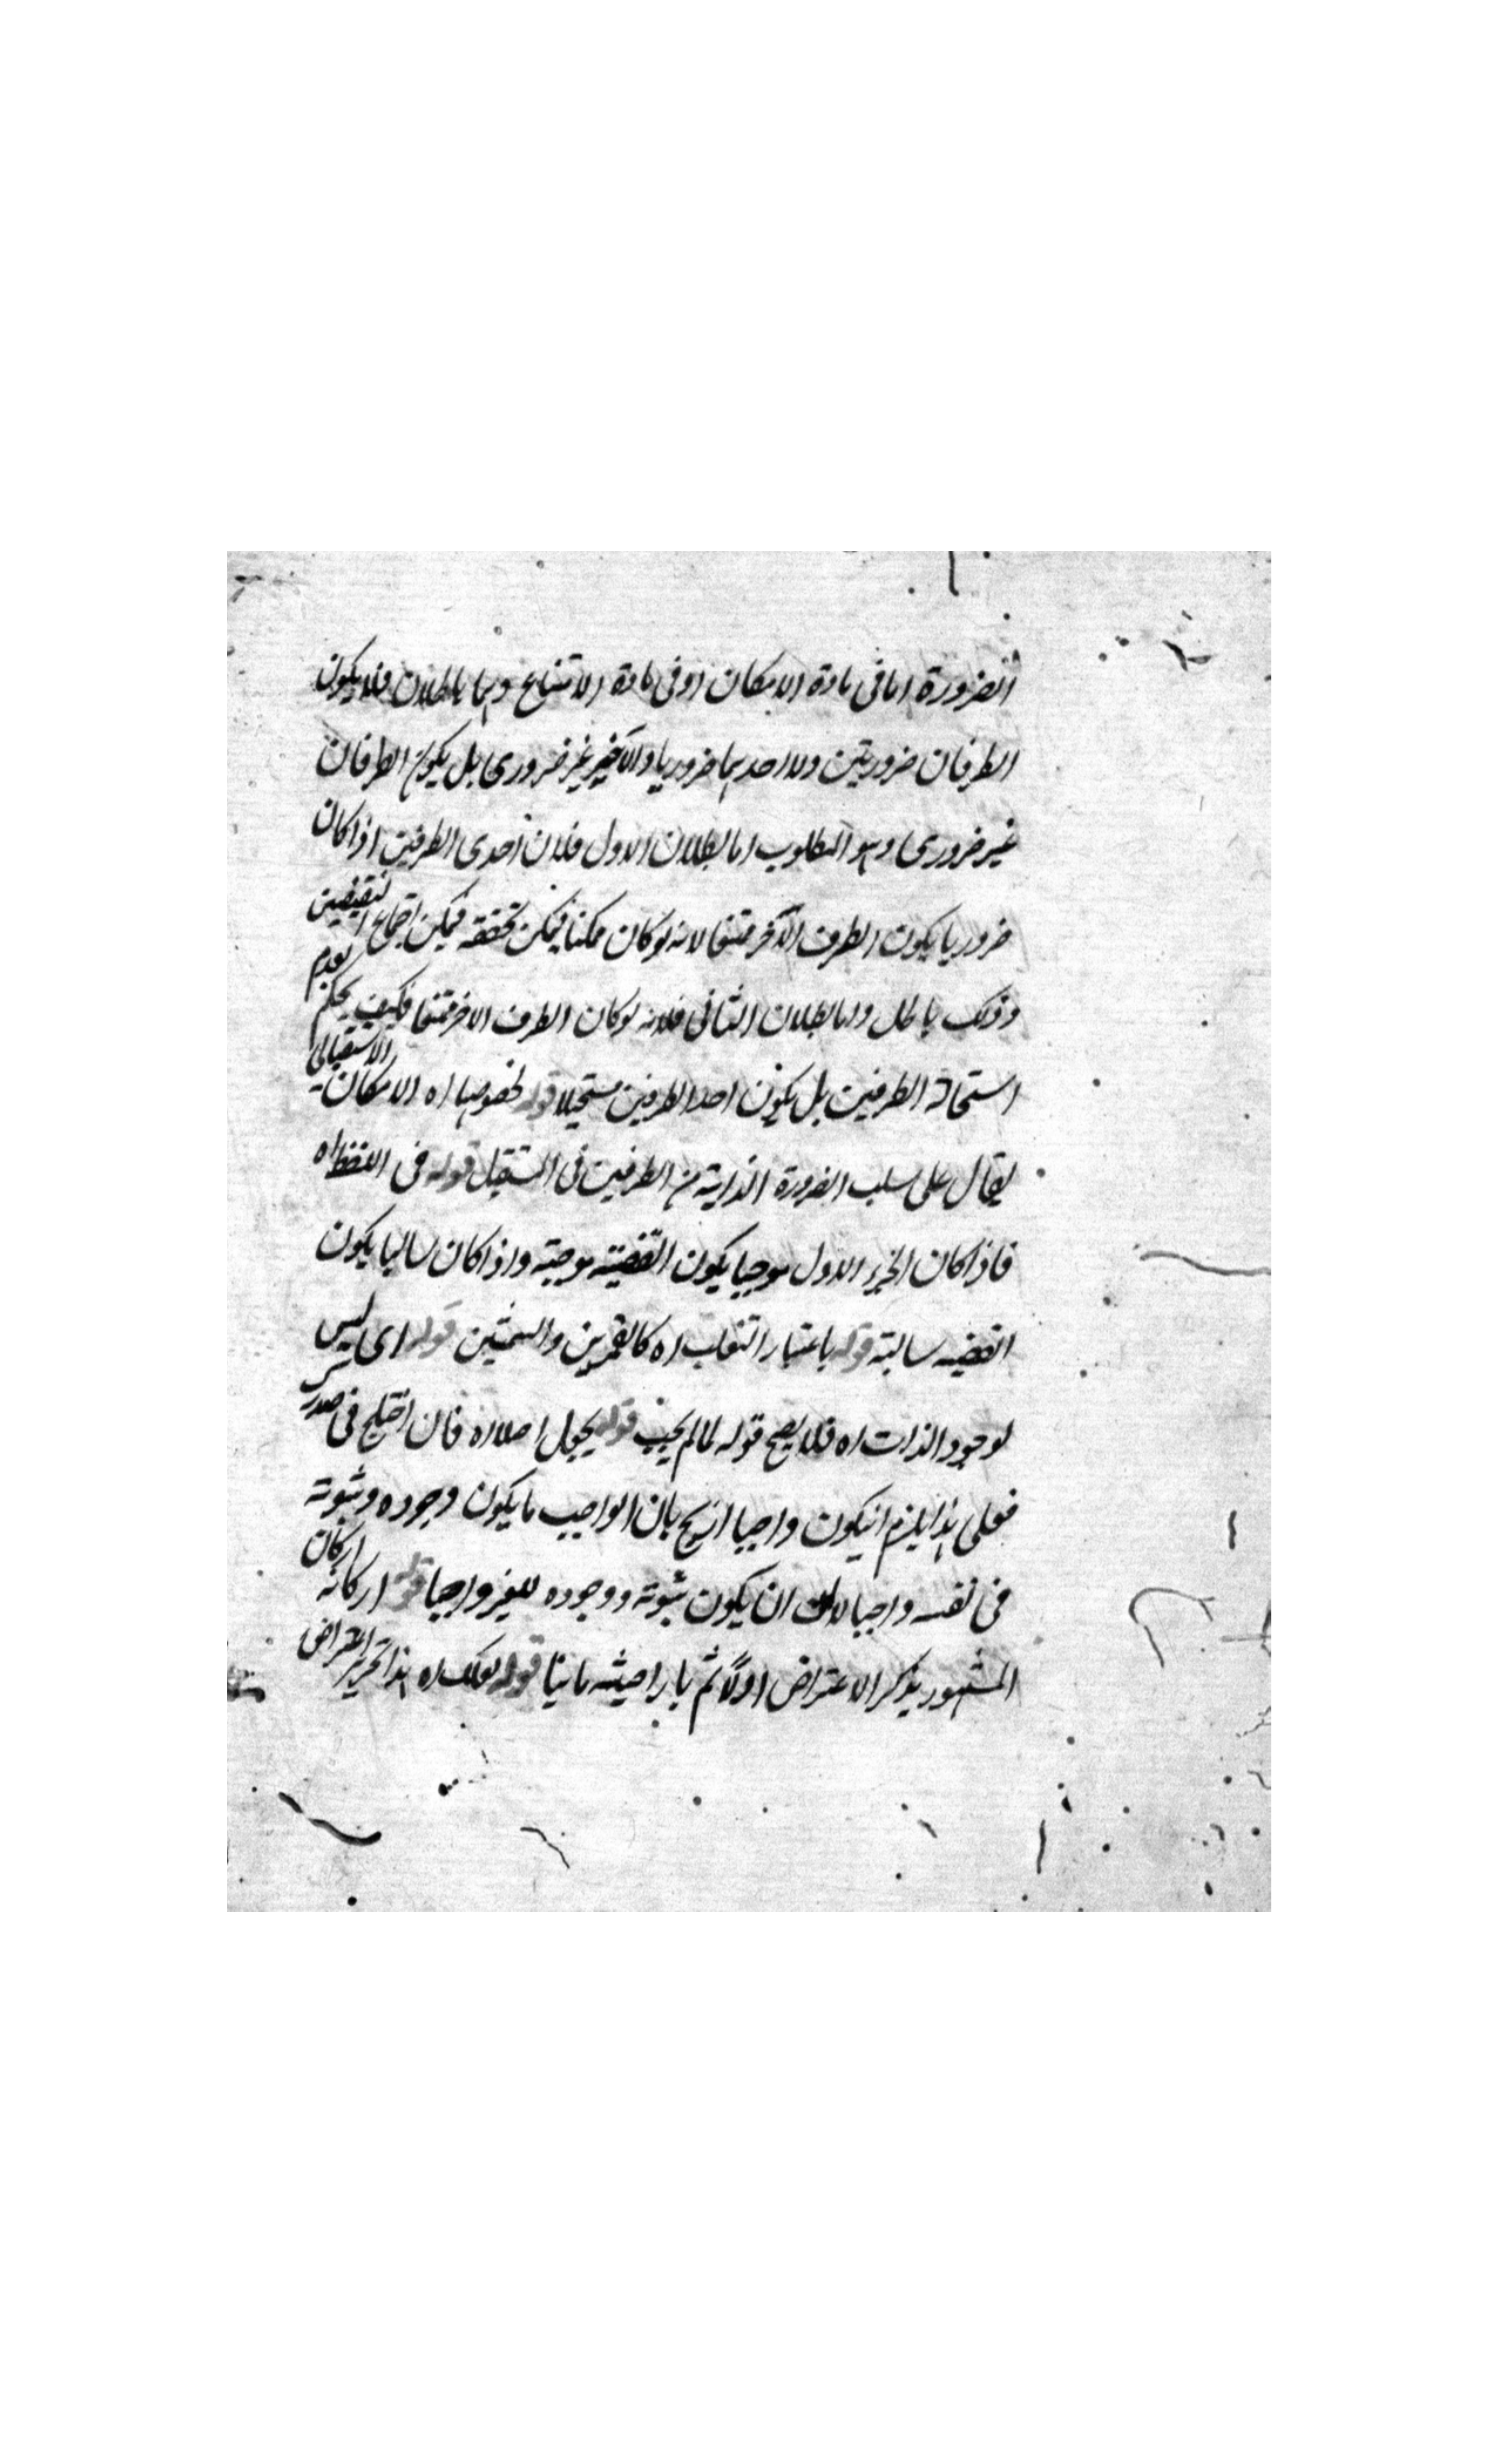 الضرورة اما فى مادة الامكان او فى مادة الامتناع وهما باطلان فلا يكون
الطرفان ضروريتين ولا احدهما ضروريا والآخر غير ضرورى بل يكون الطرفان
غير ضرورى وهو المطلوب اما بطلان الاول فلان احدى الطرفين اذا كان
ضروريا يكون الطرف الآخر ممتنعا لانه لو كان ممكنا فيمكن تحققه فيمكن اجتماع النقيضين
وذلك باطل واما بطلان الثانى فلانه لو كان الطرف الاخر ممتنعا فكيف يحكم بعدم
استحالة الطرفين بل يكون احد الطرفين مستحيلا قوله لخصوصها اه الامكان الاستقبالى
يقال على سلب الضرورة الذاتية من الطرفين فى المستقبل قوله فى اللفظ اه
فاذا كان الجزء الاول موجبا يكون القضية موجبة واذا كان سالبا يكون
القضية سالبة قوله باعتبار التغليب اه كالقمرين والشمسين قوله اى ليس
لوجود الذات اه فلا يصح قوله لما لم يجب قوله يجعل اصلا اه فان اختلج فى صدرك
فعلى هذا يلزم انيكون واجبا ازيح بان الواجب ما يكون وجوده وثبوته
فى نفسه واجبا لا ان يكون ثبوته ووجوده للغير واجبا قوله اركانه اركان
المشهور يذكر الاعتراض اولا ثم ثانيا قوله لعلك اه هذا تحرير اعتراض